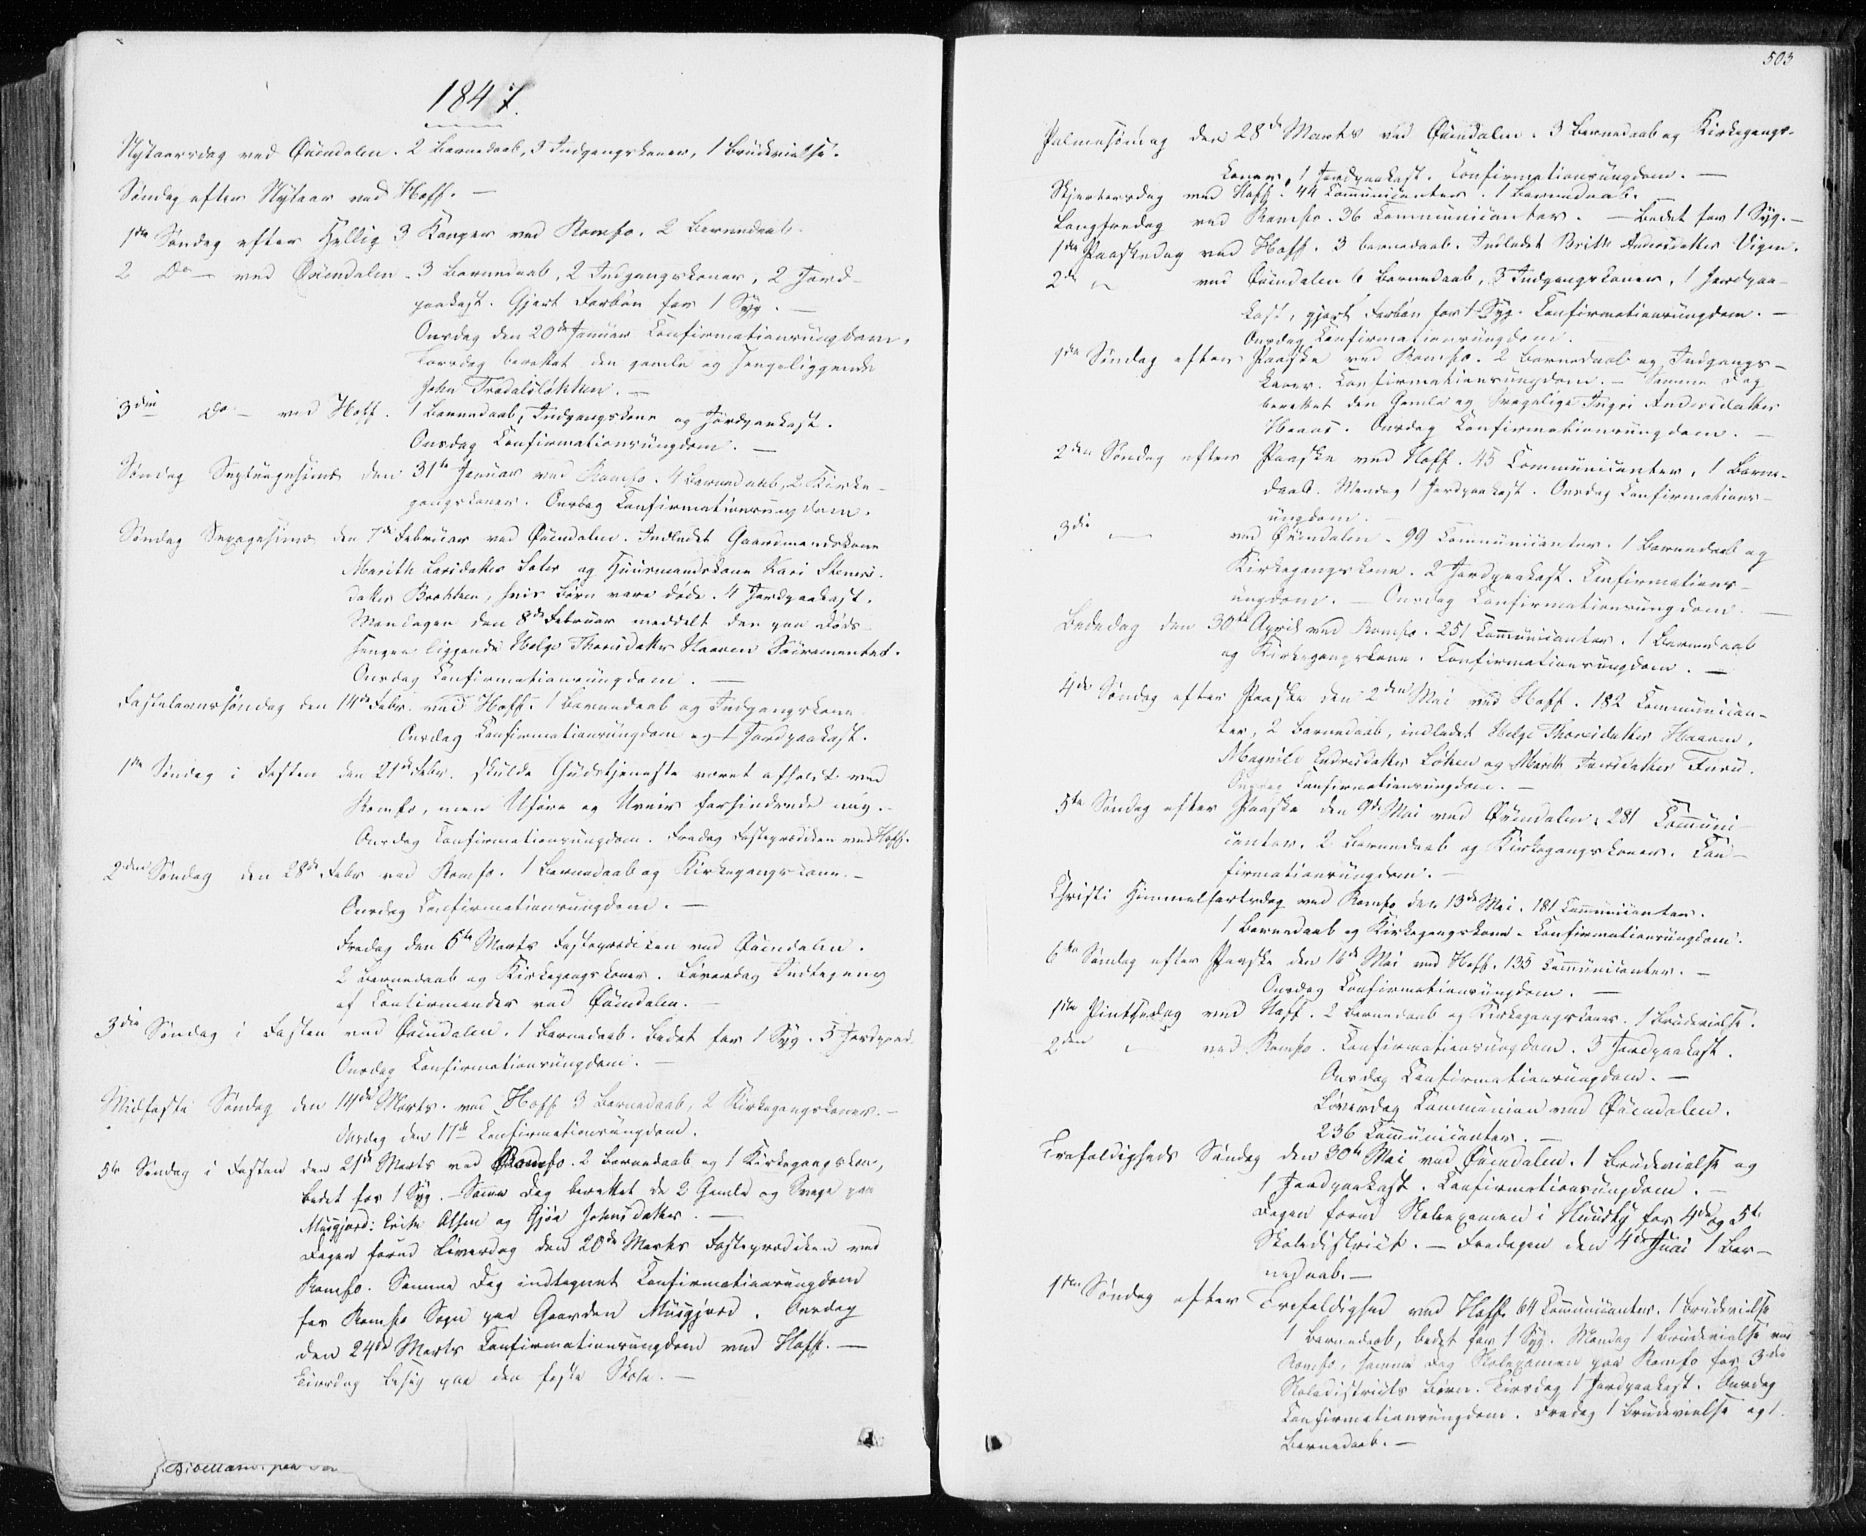 1847.
Nytaarsdag ved Øxendalen. 2 Barnedaab, 3 Indgangskoner, 1 Brudevielse.
Søndag efter Nytaar ved Hoff. —
1ste Søndag efter Hellig 3 Konger ved Romfo. 2 Barnedaab.
2 Do — ved Øxendalen. 3 Barnedaab, 2 Indgangskoner, 2 Jord-
paakast. Gjort Forbøn for 1 Syg. —
Onsdag den 20de Januar Confirmationsungdom.
Torsdag berettet den gamle og sengeliggende
John Tredalsløkken. —
3die Do — ved Hoff. 1 Barnedaab, Indgangskone og Jordpaakast.
Onsdag Confirmationsungdom. —
Søndag Septuagesima den 31te Januar ved Romfo. 4 Barnedaab, 2 Kirke-
gangskoner. Onsdag Confirmationsungdom.
Søndag Sexagesima den 7de Februar ved Øxendalen. Indledet Gaardmandskone
Marith Larsdatter Sæter og Huusmandskone Kari Stener-
datter Brækken, hvis Børn vare døde. 4 Jordpaakast.
Mandagen den 8de Februar meddelt den paa Døds-
sengen liggende Helge Thoresdatter Haaven Sacramentet.
Onsdag Confirmationsungdom. —
Fastelavnssøndag den 14de Febr. ved Hoff. 1 Barnedaab og Indgangskone
Onsdag Confirmationsungdom og 1 Jordpaakast.
1ste Søndag i Fasten den 21de Febr. skulde Gudstjeneste været afholdt ved
Romfo, men Uføre og Uveir forhindrede mig. -
Onsdag Confirmationsungdom. Fredag Fasteprædiken ved Hoff.
2den Søndag den 28de Febr ved Romfo. 1 Barnedaab og Kirkegangskone. —
Onsdag Confirmationsungdom. —
Fredag den 5te Marts Fasteprædiken ved Øxendalen.
2 Barnedaab og Kirkegangskoner. Løverdag Indtegning
af Confirmander ved Øxendalen. —
3die Søndag i Fasten ved Øxendalen. 1 Barnedaab. Bedet for 1 Syg. 5 Jordpaak.
Onsdag Confirmationsungdom. —
Midfaste Søndag den 14de Marts. ved Hoff 3 Barnedaab, 2 Kirkegangskoner. —
Onsdag den 17de Confirmationsungdom.
5te Søndag i Fasten den 21de Marts ved Romfo. 2 Barnedaab og 1 Kirkegangskon,
bedet for 1 Syg. — Samme Dag berettet de 2 Gamle og Svage paa
Musgjerd: Erik Olsen og Gjøa Johnsdatter. —
Dagen forud Løverdag den 20de Marts Fasteprædiken ved
Romfo. Samme Dag indtegnet Confirmationsungdom
for Romfo Sogn paa Gaarden Musgjerd. Onsdag
den 24de Marts Confirmationsungdom ved Hoff. —
Tirsdag Besøg paa den faste Skole. —
503
Palmesøndag den 28de Marts ved Øxendalen. 3 Barnedaab og Kirkegangs-
koner, 1 Jordpaakast. Confirmationsungdom. —
Skjærtorsdag ved Hoff. 44 Communicanter. 1 Barnedaab.
Langfredag ved Romfo. 36 Communicanter. — Bedet for 1 Syg. —
1ste Paaskedag ved Hoff. 3 Barnedaab. Indledet Brith Andersdatter Vigen.
2den — ved Øxendalen 6 Barnedaab, 3 Indgangskoner, 1 Jordpaa-
kast, gjort Forbøn for 1 Syg. Confirmationsungdom. —
Onsdag Confirmationsungdom.
1ste Søndag efter Paaske ved Romfo. 2 Barnedaab og Indgangs-
koner. Confirmationsungdom. — Samme Dag
berettet den Gamle og svagelige Ingri Andersdatter
Onsdag Confirmationsungdom. —
2den Søndag efter Paaske ved Hoff. 45 Communicanter, 1 Barne-
daab. Mandag 1 Jordpaakast. Onsdag Confirmations-
ungdom. —
3die — ved Øxendalen. 99 Communicanter. 1 Barnedaab og
Kirkegangskone. 2 Jordpaakast. Confirmations-
ungdom. — Onsdag Confirmationsungdom. —
Bededag den 30te April ved Romfo. 251 Communicanter. 1 Barnedaab
og Kirkegangskone. Confirmationsungdom. —
4de Søndag efter Paaske den 2den Mai ved Hoff. 182 Communican-
ter, 2 Barnedaab, indledet Helge Thoresdatter Haaven,
Magnild Endresdatter Løken og Marith Iversdatter Furu.
Onsdag Confirmationsungdom. —
5te Søndag efter Paaske den 9de Mai ved Øxendalen. 281 Communi-
canter. 2 Barnedaab og Kirkegangskoner. Con-
firmationsungdom. —
Christi Himmelfartsdag ved Romfo den 13de Mai. 181 Communicanter.
1 Barnedaab og Kirkegangskone. Confirmationsungdom.
6te Søndag efter Paaske den 16de Mai ved Hoff. 135 Communicanter. —
Onsdag Confirmationsungdom. —
1ste Pintsedag ved Hoff. 2 Barnedaab og Kirkegangskoner. 1 Brudevielse.
2den — ved Romfo. Confirmationsungdom. 3 Jordpaakast.
Onsdag Confirmationsungdom. —
Løverdag Communion ved Øxendalen.
236 Communicanter. —
Trefoldigheds Søndag den 30te Mai ved Øxendalen. 1 Brudevielse og
1 Jordpaakast. Confirmationsungdom. —
Dagen forud Skoleexamen i Huusby for 4de og 5te
Skoledistrict. — Fredagen den 4de Juni 1 Bar-
nedaab. —
1ste Søndag efter Trefoldighed ved Hoff 64 Communicanter. 1 Brudevielse
1 Barnedaab, bedet for 1 Syg. Mandag 1 Brudevielse ved
Romfo, samme Dag Skoleexamen paa Romfo for 3die
Skoledistricts Børn. Tirsdag 1 Jordpaakast. Onsdag
Confirmationsungdom. Fredag 1 Brudevielse og 1
Barnedaab. —